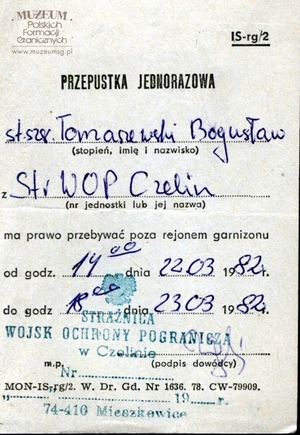 MUZEUM
Polskich
Formacji
Granicznych
www.muzeumsg.pl
IS-rg/2
PRZEPUSTKA JEDNORAZOWA
st.szer. Tomaszewski Bogusław
(stopień, imię i nazwisko)
z Str WOP Czelin
(nr jednostki lub jej nazwa)
ma prawo przebywać poza rejonem garnizonu
od godz. 14 00 dnia 22.03 1982r.
do godz. 18 00 dnia 23.03 1982r.
STRAŻNICA
WOJSK OCHRONY POGRANICZA
w Czelinie
m.p. (podpis dowódcy)
Nr
MON-IS-rg/2. W. Dr. Gd. Nr 1636. 78. CW-79909.
" 19 r.
74-410 Mieszkowice